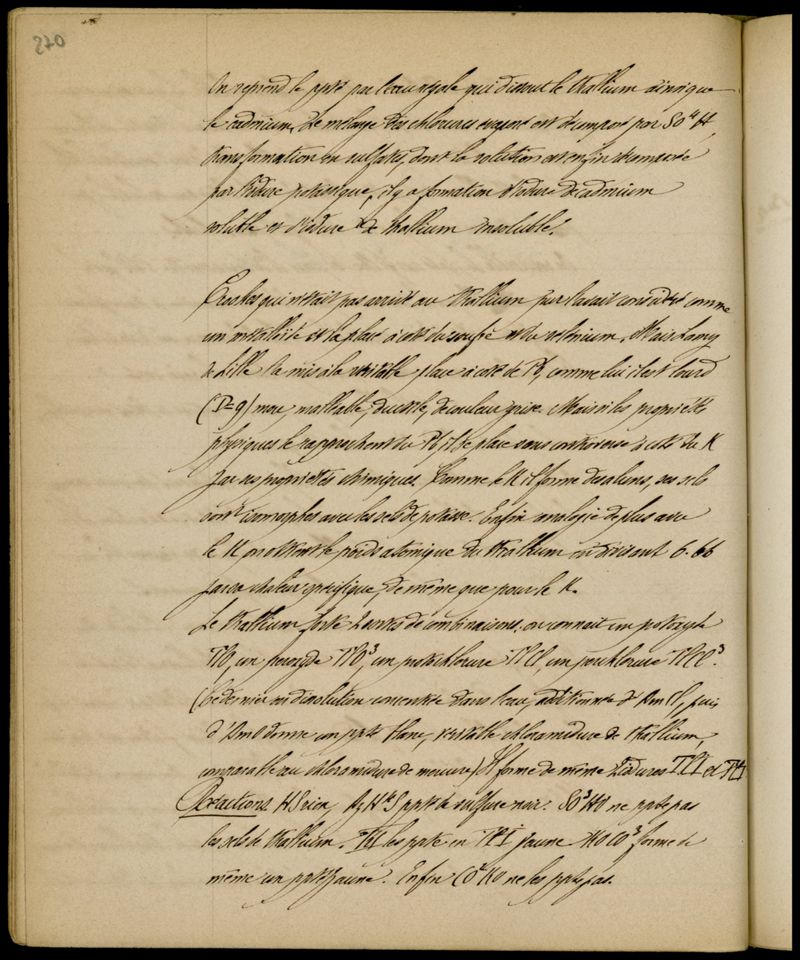 270
On reprend le ppté par l'eau régale qui dissout le thallium ainsi que
le cadmium. Le mélange des chlorures évaporé est décomposé par SO4 H,
transformation en sulfates, dont la solution est enfin
par l'iodure potassique, il y a formation d'iodure de cadmium
soluble et d'iodure de thallium insoluble.
Crookes qui n'était pas arrivé au thallium pur l'avait considéré comme
un métalloïde et l'a placé à côté du soufre et du selenium. Mais Lamy
de Lille l'a mis à la véritable place à côté de Pb, comme lui il est lourd
mou, malléable, ductile, de couleur grise. Mais si les propriétés
physiques le rapprochent du Pb, il se place sans controverse à côté du K
par ses propriétés chimiques. Comme le K il forme des aluns, ses sels
sont isomorphes avec les sels de potasse. Enfin analogie de plus avec
le K on obtient le poids atomique du thallium en divisant 6.66
par sa chaleur spécifique, de même que pour le K.
Le thallium forme 2 sortes de combinaisons. on connait un protoxyde
TlO, un peroxyde TlO3, un protochlorure TlCl, un perchlorure TlCl3.
(ce dernier en dissolution concentrée dans l'eau, additionnée d'AmCl, puis
d'AmO donne un ppté blanc, véritable chloramidure de thallium,
comparable au chloramidure de mercure). Il forme de même 2 iodures TlI et
Réactions. HS rien, AzH4S ppté de sulfure noir. ne ppte pas
les sels de thallium. les ppte en TlI jaune forme de
même un ppté jaune. Enfin CO2KO ne les ppte pas.